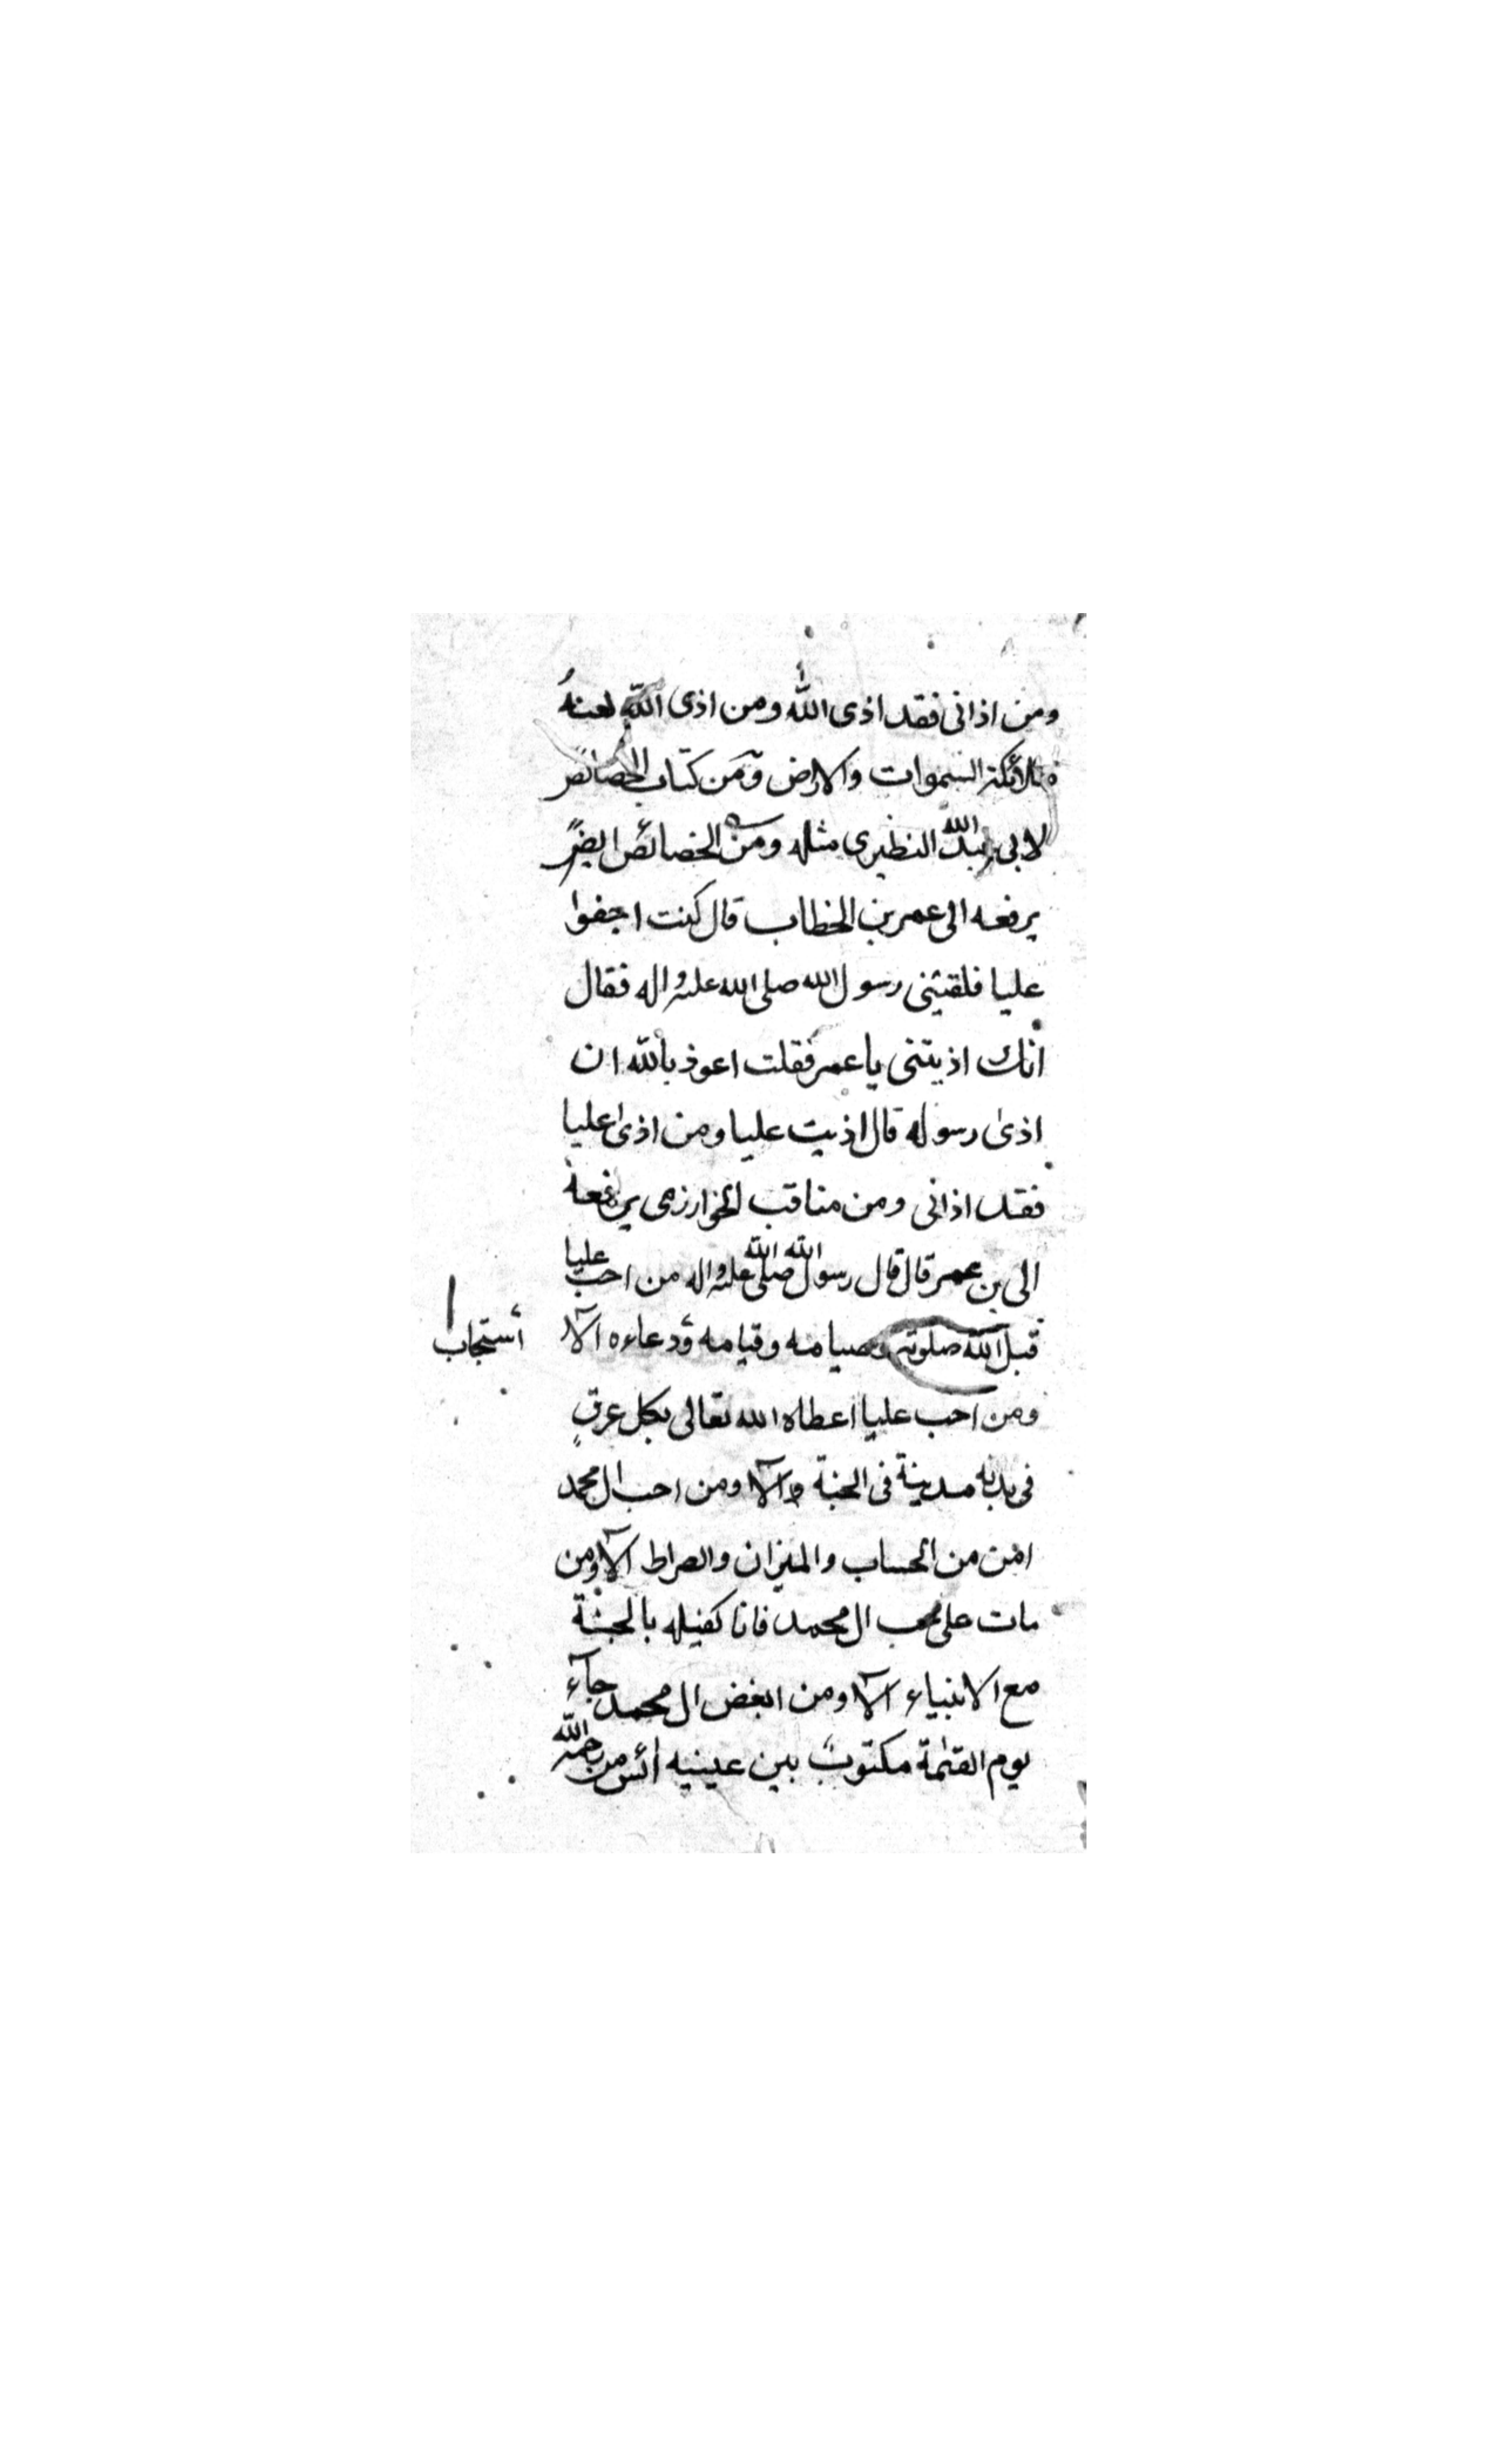 ومن اذانى فقد اذى الله ومن اذى الله لعنه
ملائكة السموات والارض ومن كتاب الخصائص
لابى عبد الله النطيرى مثله ومن الخصائص ايضا
يرفعه الى عمر بن الخطاب قال كنت اجفوا
عليا فلقيتنى رسول الله صلى الله عليه واله فقال
انك اذيتنى يا عمر فقلت اعوذ بالله ان
اذى رسوله قال اذيت عليا ومن اذى عليا
فقد اذانى ومن مناقب الخوارزمى يرفعه
الى بن عمر قال قال رسول الله صلى الله عليه واله من احب عليا
قبل الله صلوته وصيامه وقيامه ودعاءه الا
استجاب
ومن احب عليا اعطاه الله تعالى بكل عرق
فى بدنه مدينة فى الجنة والا ومن احب ال محمد
امن من الحساب والميزان والصراط الا ومن
مات على حب ال محمد فانا كفيله بالجنة
مع الانبياء الا ومن ابغض ال محمد جاء
يوم القيمة مكتوب بين عينيه ائس من رحمة الله